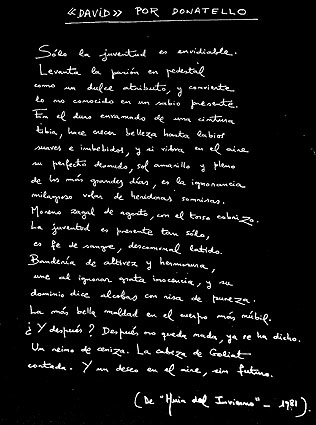 «DAVID» POR DONATELLO
Sólo la juventud es envidiable.
Levanta la pasión en pedestal
como un dulce atributo, y convierte
lo no conocido en un sabio presente.
En el duro enramado de una cintura
tibia, hace crecer belleza hasta labios
suaves e imbebidos, y si vibra en el aire
su perfecto desnudo, sol amarillo y pleno
de los más grandes días, es la ignorancia
milagroso volar de herederas sonrisas.
Moreno zagal de agosto, con el torso cobrizo.
La juventud es presente tan sólo,
es fe de sangre, descomunal latido.
Bandería de altivez y hermosura,
une al ignorar grata inocencia, y su
dominio dice alcobas con risa de pureza.
La más bella maldad en el cuerpo más núbil.
¿Y después? Después no queda nada, ya se ha dicho.
Un reino de ceniza. La cabeza de Goliat
cortada. Y un deseo en el aire, sin futuro.
(De "Huir del Invierno" - 1981).